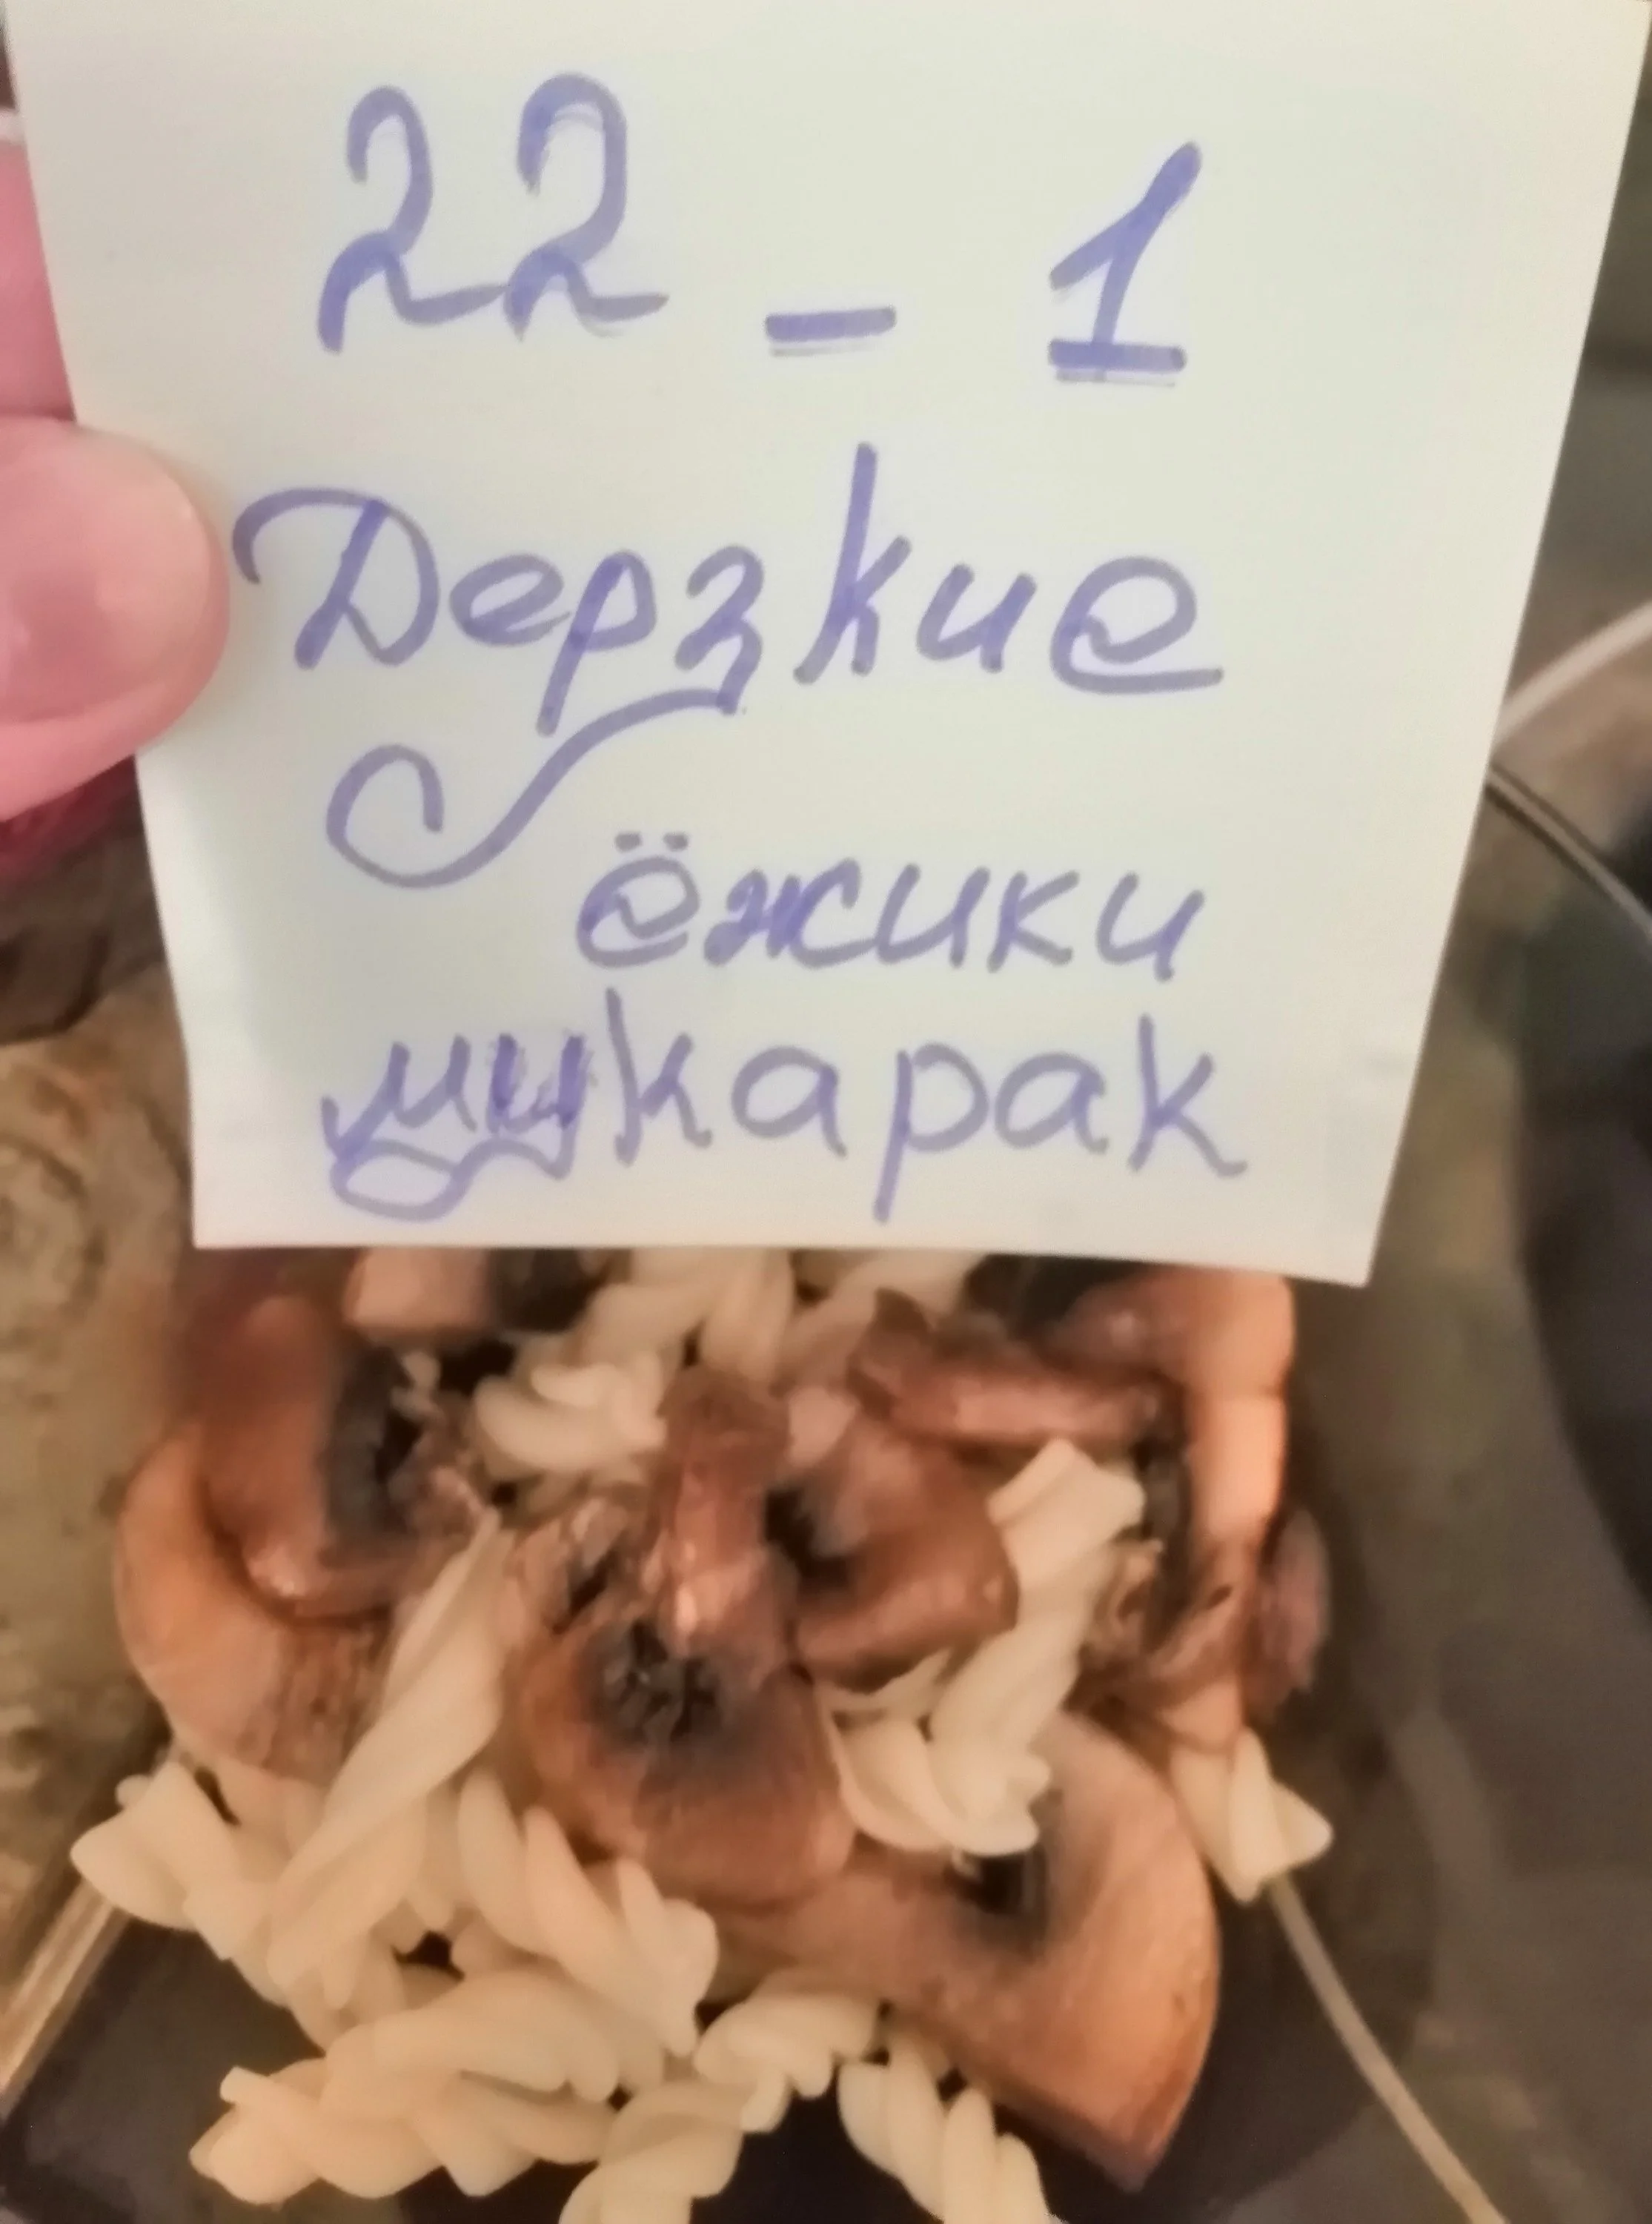 22 - 1
Дерзкие
ёжики
мукарак